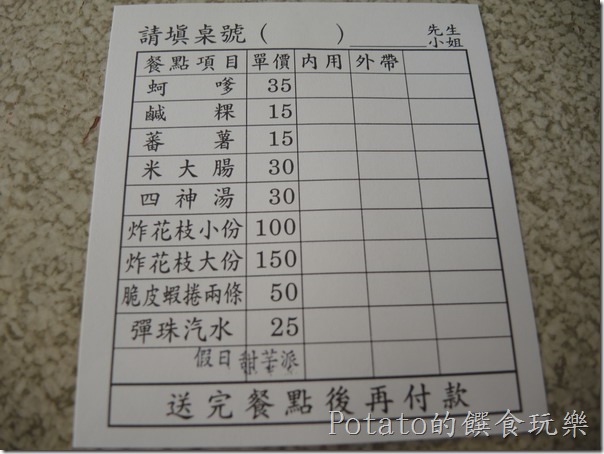 請填桌號（　　）＿＿＿先生小姐
餐點項目 單價 內用 外帶
蚵嗲 35
鹹粿 15
蕃薯 15
米大腸 30
四神湯 30
炸花枝小份 100
炸花枝大份 150
脆皮蝦捲兩條 50
彈珠汽水 25
假日 甜苦派
送完餐點後再付款
Potato的饌食玩樂